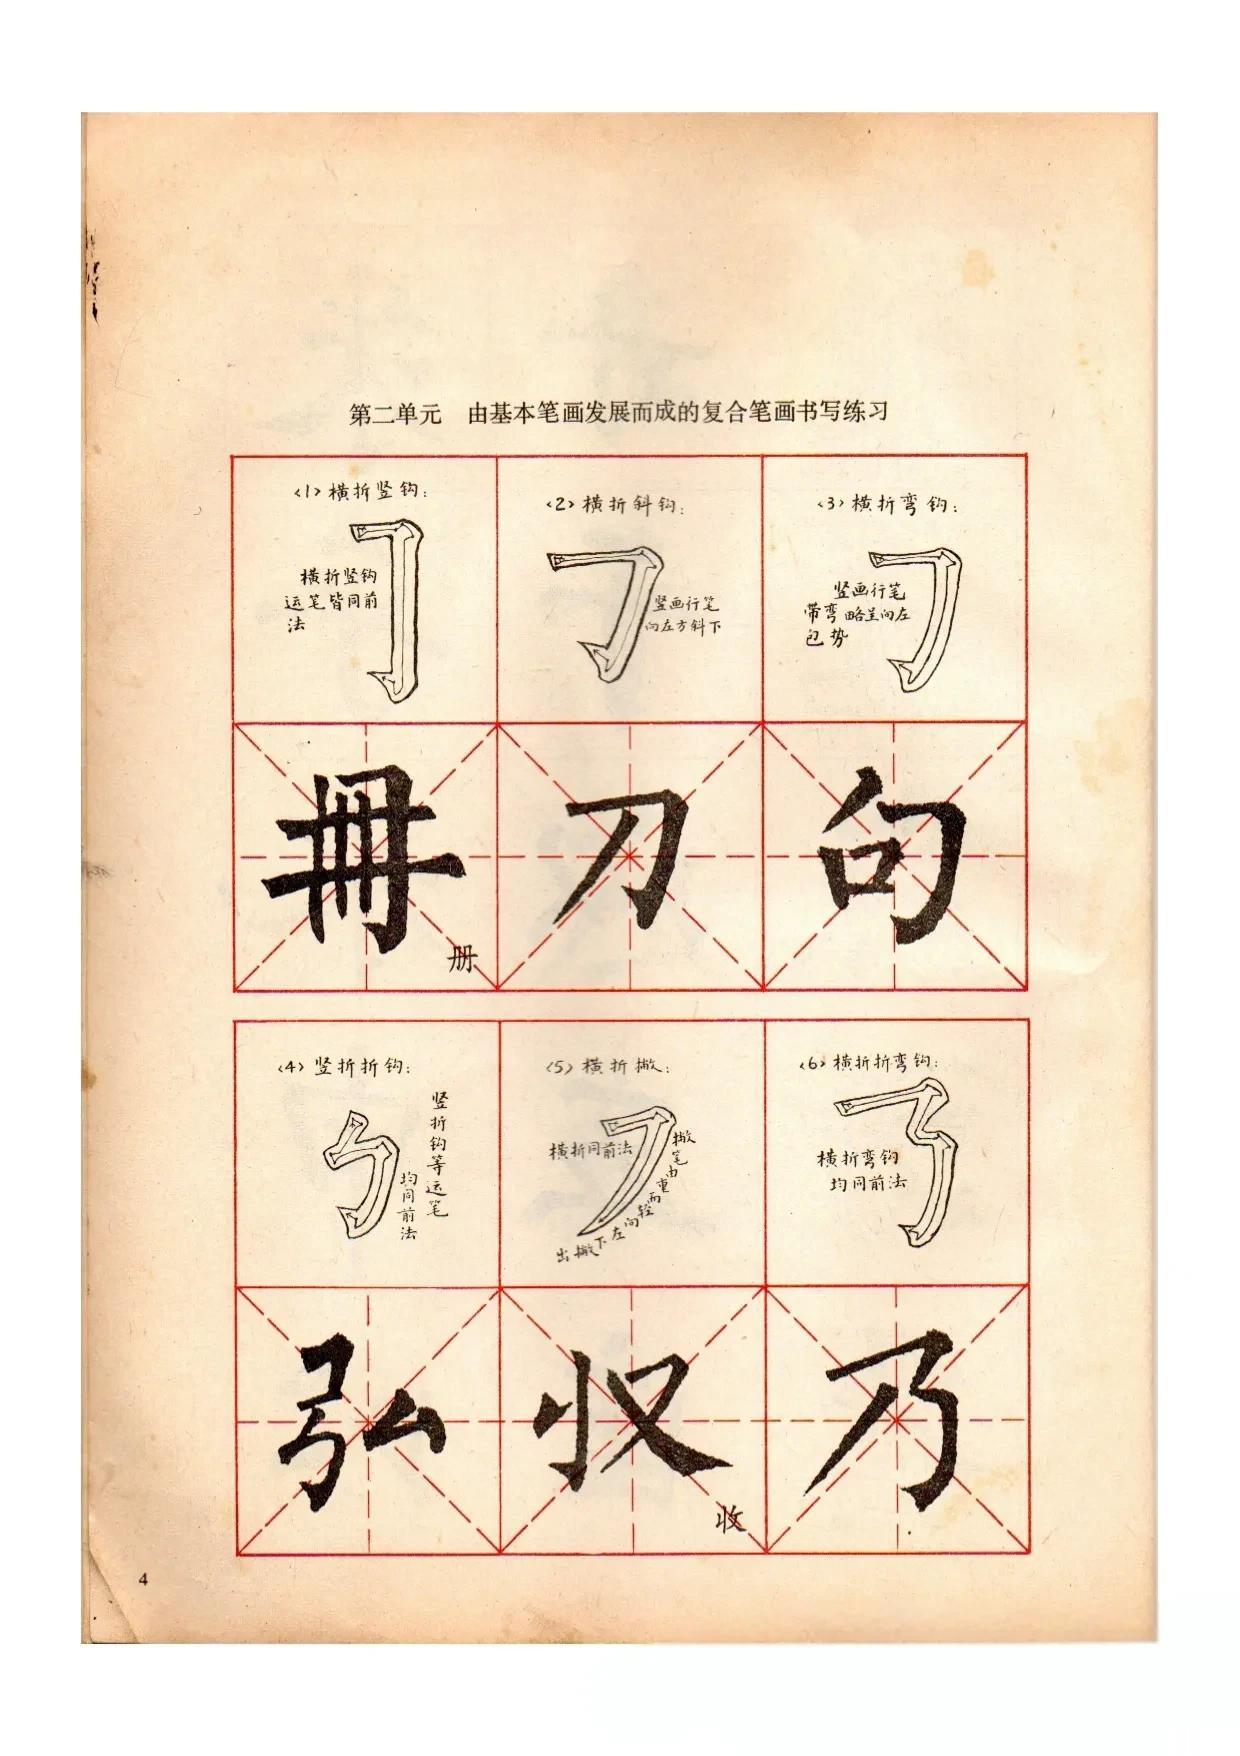 第二单元 由基本笔画发展而成的复合笔画书写练习
〈1〉横折竖钩：
横折竖钩
运笔皆同前
法
〈2〉横折斜钩：
竖画行笔
向左方斜下
〈3〉横折弯钩：
竖画行笔
带弯略呈向左
包势
冊
册
刀
句
〈4〉竖折折钩：
竖折钩等运笔
均同前法
〈5〉横折撇：
横折同前法
撇笔由重而轻向左下撇出
〈6〉横折折弯钩：
横折弯钩
均同前法
弘
収
收
乃
4